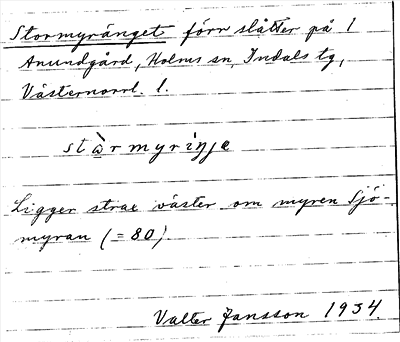 Stormyränget förr slåtter på 1
Anundgård, Holms sn, Indals tg,
Västernorrl. l.
stàrmyrìŋje
Ligger strax väster om myren Sjö-
myran (= 80).
Valter Jansson 1934.